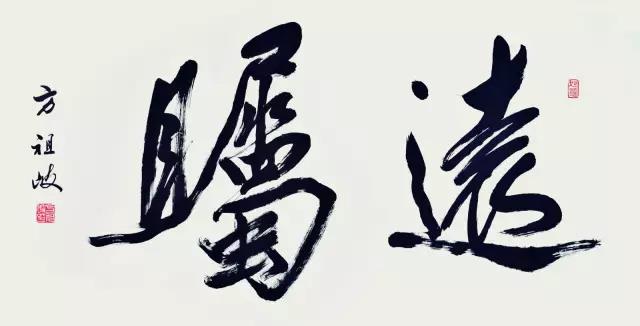 遠矚
方祖岐